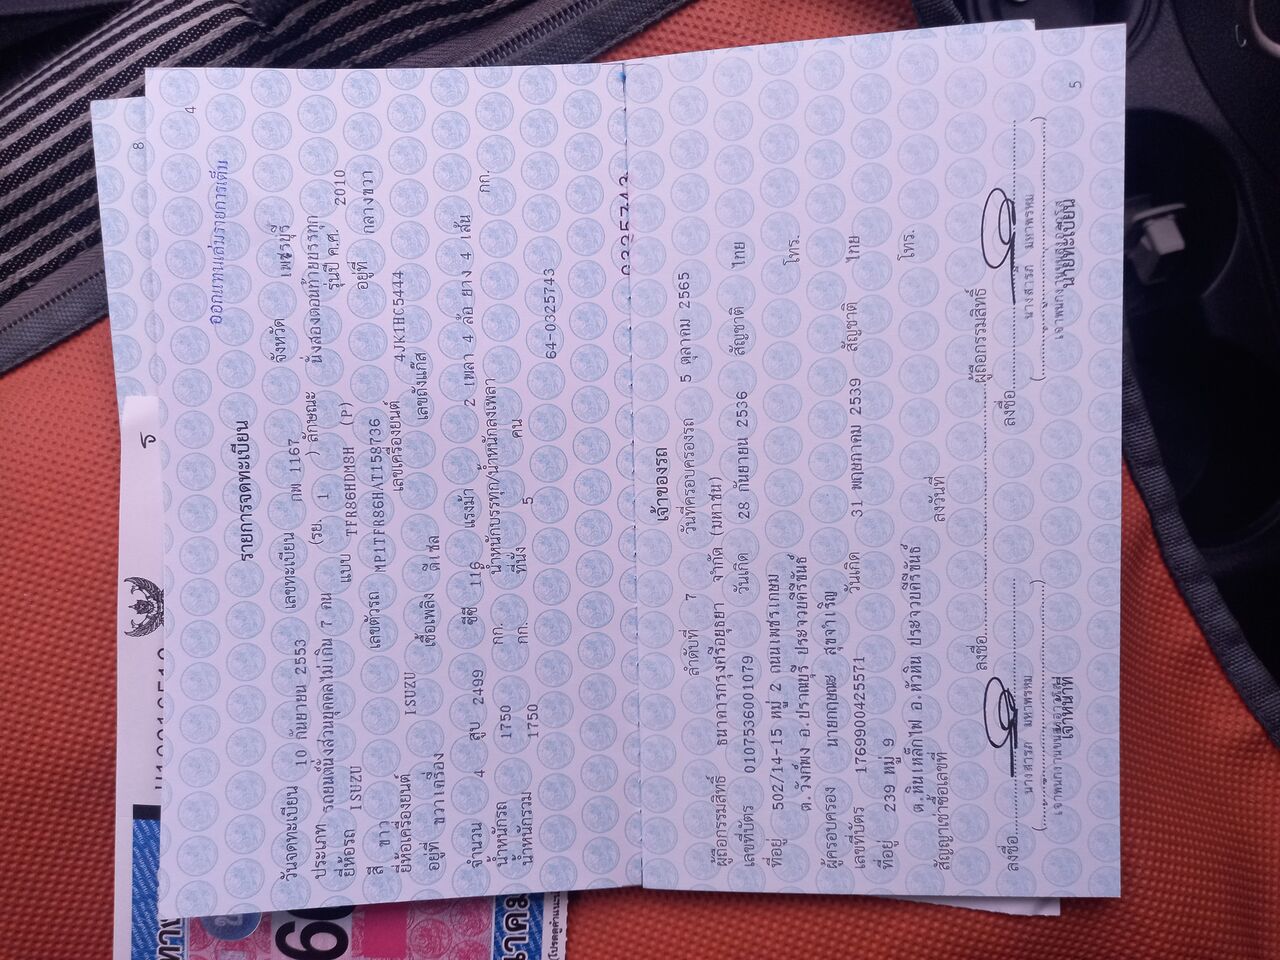 8
4
ออกแทนเล่มรายการเต็ม
รายการจดทะเบียน
วันจดทะเบียน 10 กันยายน 2553 เลขทะเบียน กพ 1167 จังหวัด เพชรบุรี
ประเภท รถยนต์นั่งส่วนบุคคลไม่เกิน 7 คน (รย. 1 ) ลักษณะ นั่งสองตอนท้ายบรรทุก
ยี่ห้อรถ ISUZU แบบ TFR86HDM8H (P) รุ่นปี ค.ศ. 2010
สี ขาว เลขตัวรถ MP1TFR86HAT158736 อยู่ที่ กลางขวา
ยี่ห้อเครื่องยนต์ ISUZU เลขเครื่องยนต์ 4JK1HC5444
อยู่ที่ ขวาเครื่อง เชื้อเพลิง ดีเซล เลขถังแก๊ส
จำนวน 4 สูบ 2499 ซีซี 116 แรงม้า 2 เพลา 4 ล้อ ยาง 4 เส้น
น้ำหนักรถ 1750 กก. น้ำหนักบรรทุก/น้ำหนักลงเพลา กก.
น้ำหนักรวม 1750 กก. ที่นั่ง 5 คน
64-0325743
0325743
เจ้าของรถ
ลำดับที่ 7 วันที่ครอบครองรถ 5 ตุลาคม 2565
ผู้ถือกรรมสิทธิ์ ธนาคารกรุงศรีอยุธยา จำกัด (มหาชน)
เลขที่บัตร 0107536001079 วันเกิด 28 กันยายน 2536 สัญชาติ ไทย
ที่อยู่ 502/14-15 หมู่ 2 ถนนเพชรเกษม
ต.วังก์พง อ.ปราณบุรี ประจวบคีรีขันธ์ โทร.
ผู้ครอบครอง นายกฤษณะ สุขจำเริญ
เลขที่บัตร 1769900425571 วันเกิด 31 พฤษภาคม 2539 สัญชาติ ไทย
ที่อยู่ 239 หมู่ 9
ต.หินเหล็กไฟ อ.หัวหิน ประจวบคีรีขันธ์ โทร.
สัญญาเช่าซื้อเลขที่ ลงวันที่
ลงชื่อ ผู้ถือกรรมสิทธิ์
ลงชื่อ ลงชื่อ
นางสารภี มหาพรหม นางสารภี มหาพรหม
เจ้าหน้าที่ นายทะเบียน
5